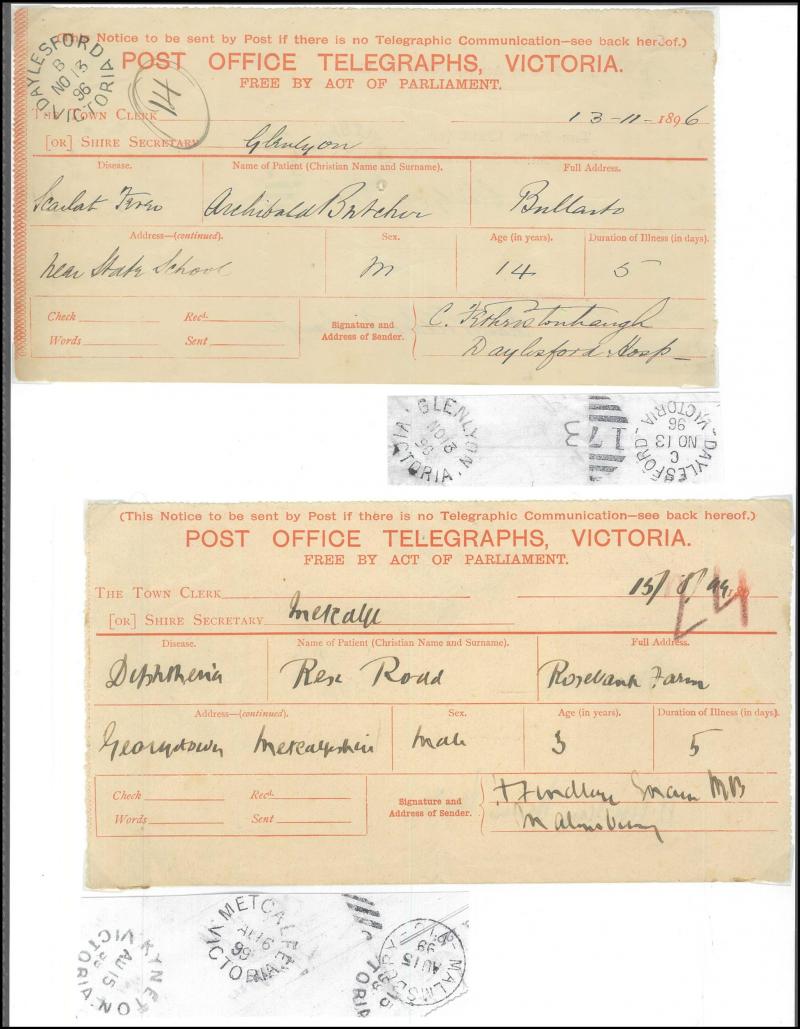 (This Notice to be sent by Post if there is no Telegraphic Communication—see back hereof.)
POST OFFICE TELEGRAPHS, VICTORIA.
FREE BY ACT OF PARLIAMENT.
DAYLESFORD
B
NO 13
96
VICTORIA
14
THE TOWN CLERK 13-11-1896
[OR] SHIRE SECRETARY Glenlyon
Disease. Name of Patient (Christian Name and Surname). Full Address.
Scarlat Fever Archibald Butcher Bullarto
Address—(continued). Sex. Age (in years). Duration of Illness (in days).
near State School M 14 5
Check Recd.
Words Sent
Signature and Address of Sender.
C.
Daylesford Hosp
GLENLYON
NO 13
96
VICTORIA
173
DAYLESFORD
C
NO 13
96
VICTORIA
(This Notice to be sent by Post if there is no Telegraphic Communication—see back hereof.)
POST OFFICE TELEGRAPHS, VICTORIA.
FREE BY ACT OF PARLIAMENT.
THE TOWN CLERK 15/8/99
24
[OR] SHIRE SECRETARY Metcalfe
Disease. Name of Patient (Christian Name and Surname). Full Address.
Diphtheria Rex Rodd Rosebank Farm
Address—(continued). Sex. Age (in years). Duration of Illness (in days).
Georgetown Metcalfeshire Male 3 5
Check Recd.
Words Sent
Signature and Address of Sender.
MB
Malmsbury
KYNETON
AU 15
99
VICTORIA
METCALFE
AU 16
99
VICTORIA
MALMSBURY
AU 15
99